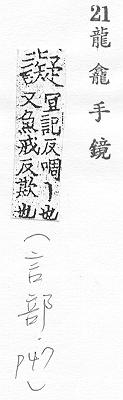 21龍龕手鏡
譺冝記反啁丨也
又魚戒反欺也
(言部.p47)